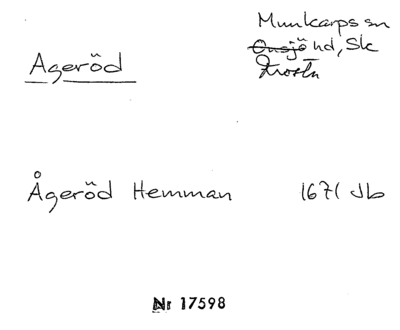 Munkarps sn
Ageröd Onsjö hd, Sk
Frosta
Ågeröd Hemman 1671 Jb
Nr 17598